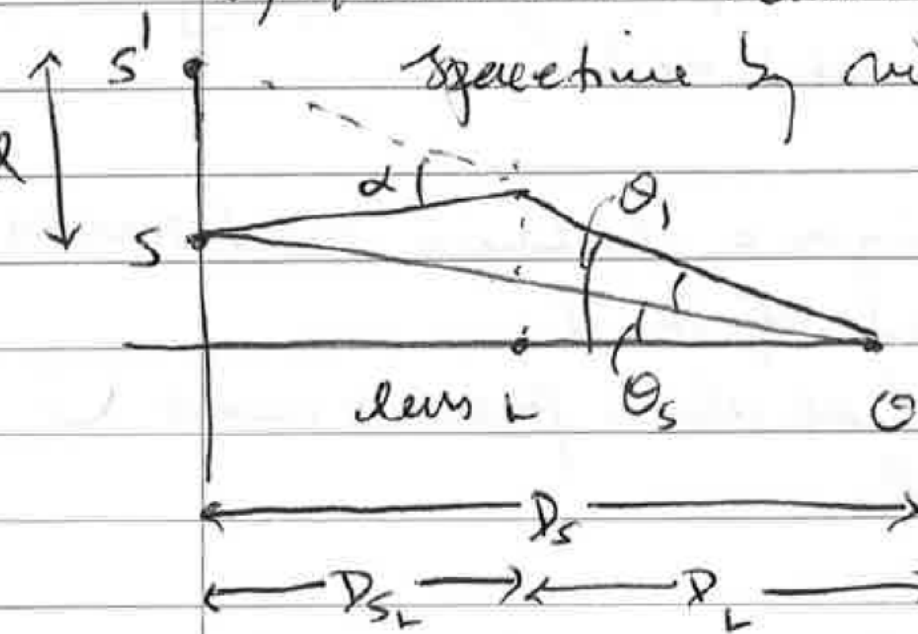 S'
spacetime by
α
θ₁
S
lens L
θ_S
O
D_S
D_SL
D_L